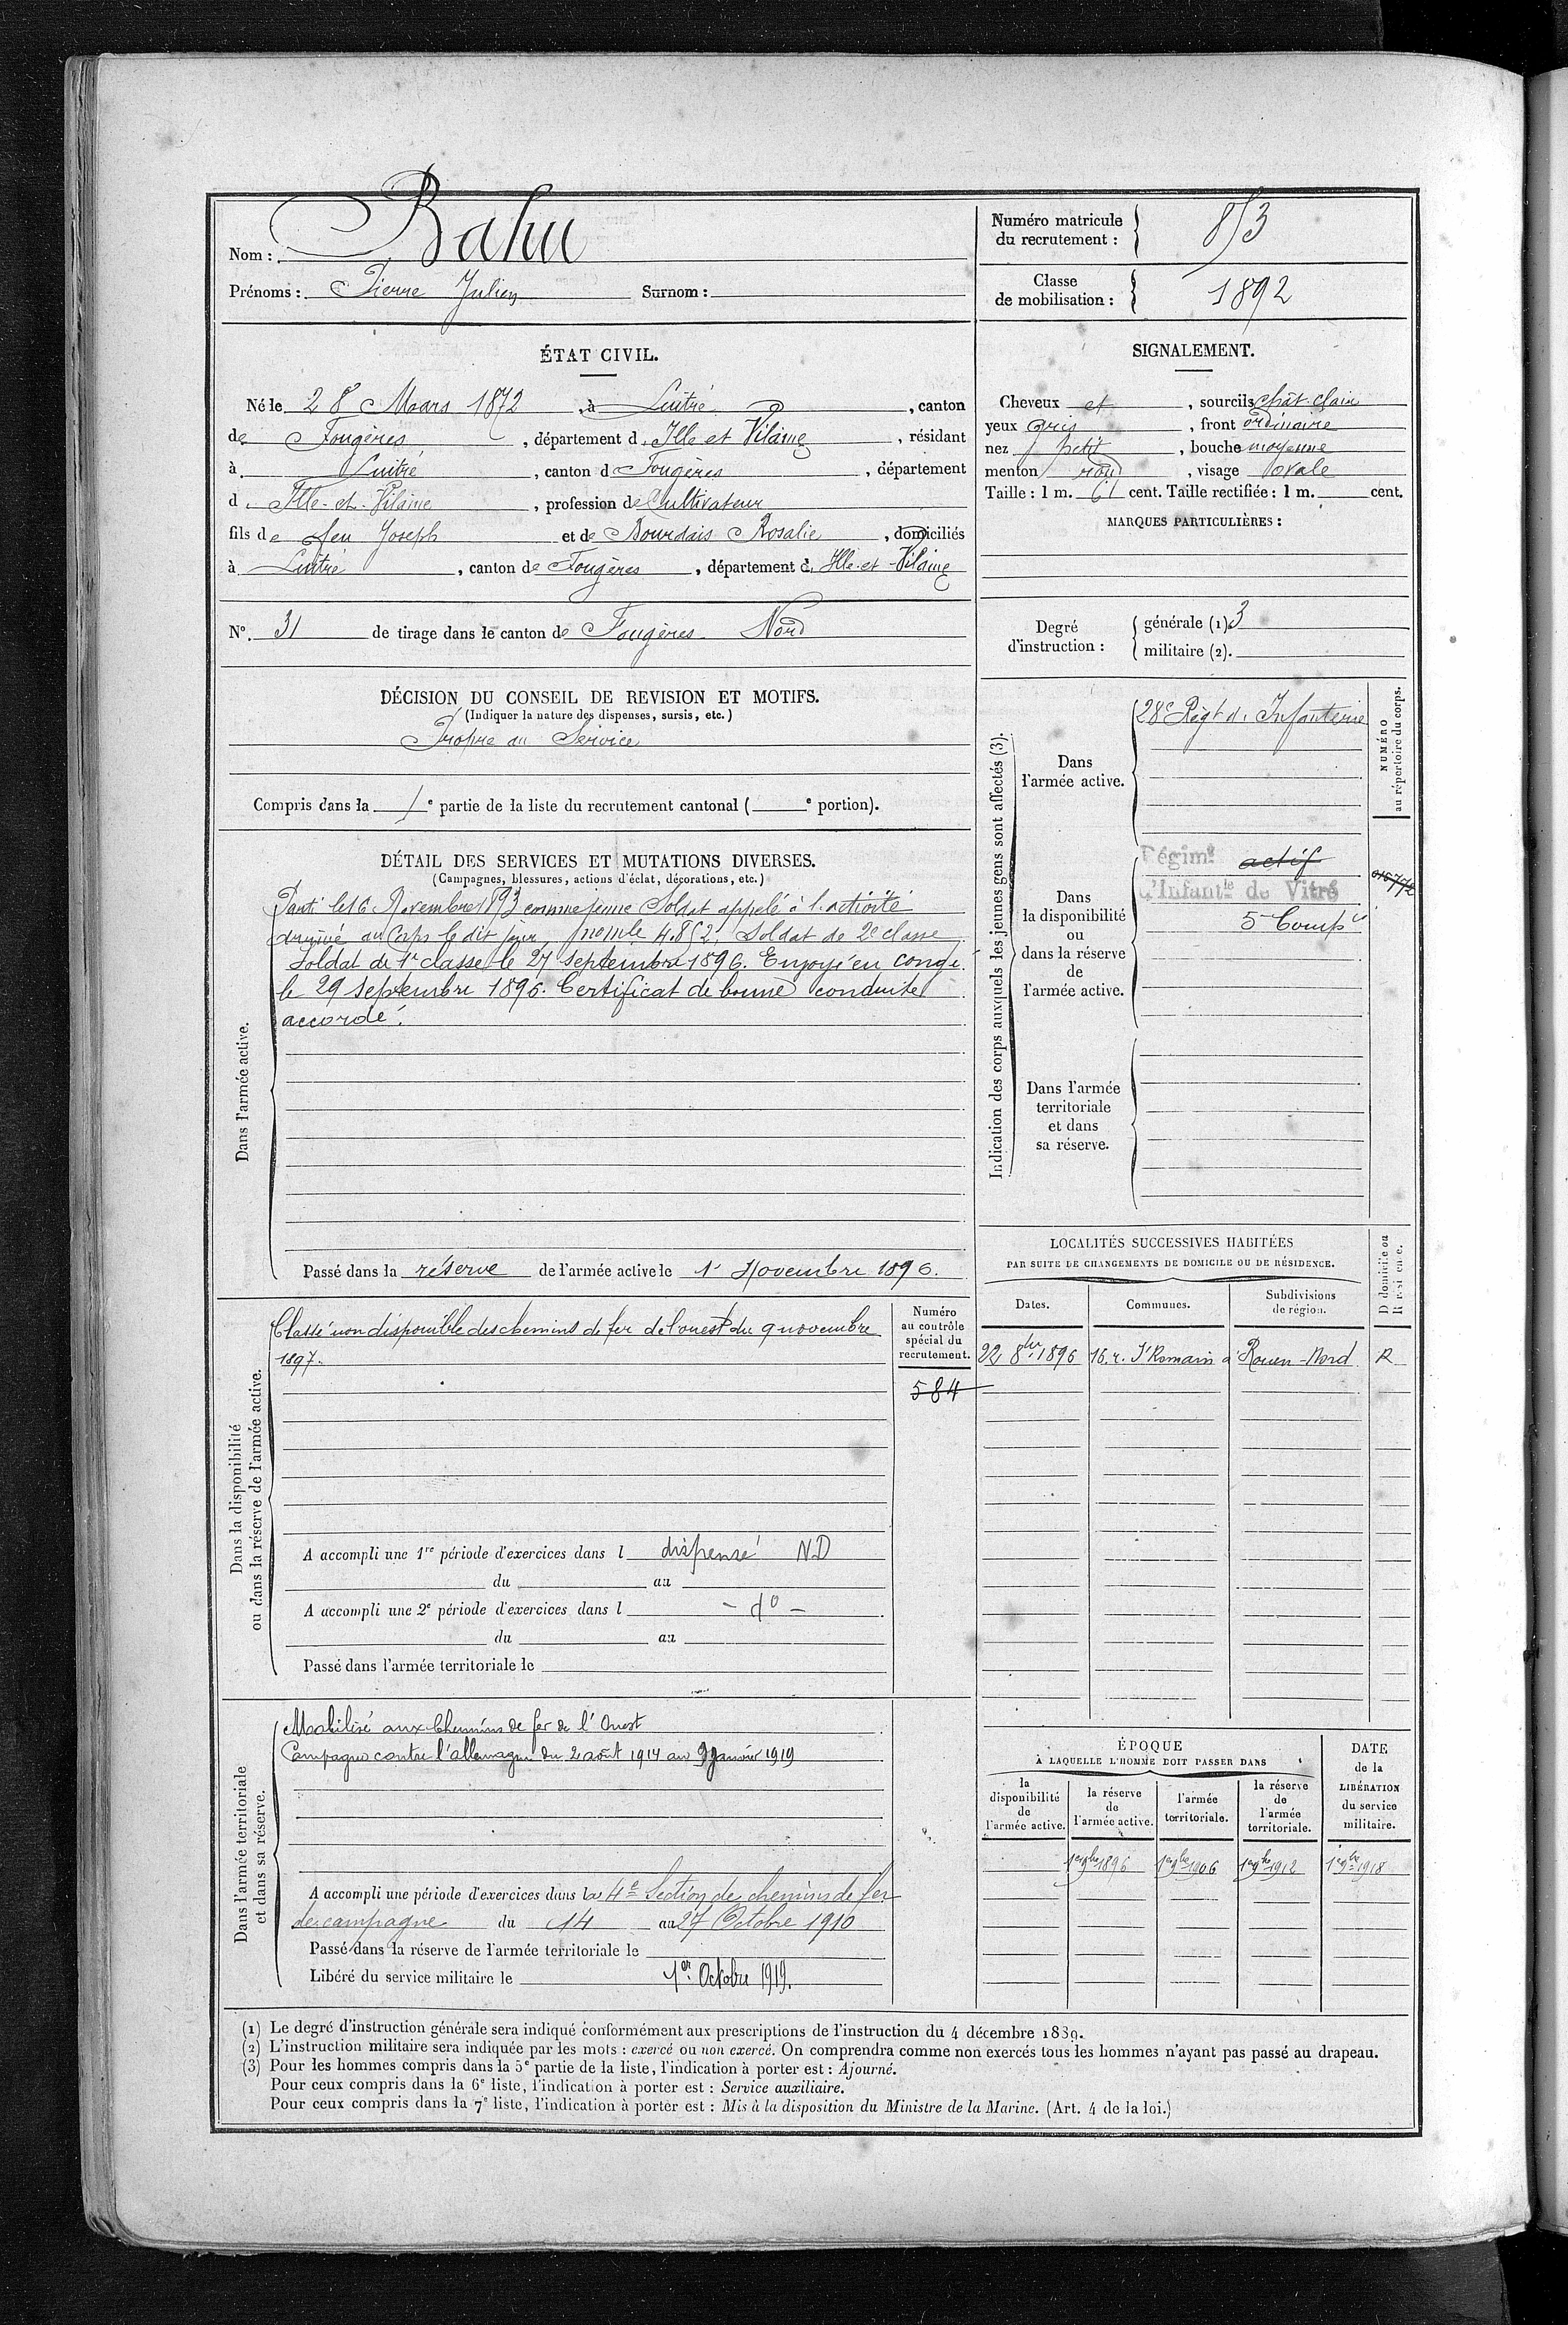 Nom : Bahu
Prénoms : Pierre Julien Surnom :
Numéro matricule du recrutement : 853
Classe de mobilisation : 1892
ÉTAT CIVIL.
Né le 28 Mars 1872, à Luitré, canton
de Fougères, département d. Ille et Vilaine, résidant
à Luitré, canton d Fougères, département
d. Ille-et-Vilaine, profession de Cultivateur
fils de feu Joseph et de Bourdais Rosalie, domiciliés
à Luitré, canton de Fougères, département d. Ille-et-Vilaine
N°. 31 de tirage dans le canton de Fougères Nord
SIGNALEMENT.
Cheveux et, sourcils chât. clair
yeux gris, front ordinaire
nez petit, bouche moyenne
menton rond, visage ovale
Taille : 1 m. 61 cent. Taille rectifiée : 1 m. cent.
MARQUES PARTICULIÈRES :
Degré d'instruction :
générale (1) 3
militaire (2).
DÉCISION DU CONSEIL DE REVISION ET MOTIFS.
(Indiquer la nature des dispenses, sursis, etc.)
Propre au Service
Compris dans la 1e partie de la liste du recrutement cantonal ( e portion).
DÉTAIL DES SERVICES ET MUTATIONS DIVERSES.
(Campagnes, blessures, actions d'éclat, décorations, etc.)
Dans l'armée active.
Parti le 16 Novembre 1893 comme jeune Soldat appelé à l'activité
arrivé au Corps le dit jour, No mle 4.852, Soldat de 2e classe
Soldat de 1e classe le 27 septembre 1896. Envoyé en congé
le 29 septembre 1896. Certificat de bonne conduite
accordé.
Passé dans la réserve de l'armée active le 1r Novembre 1896.
Indication des corps auxquels les jeunes gens sont affectés (3).
NUMÉRO au répertoire du corps.
Dans l'armée active.
28e Régt d. Infanterie
Dans la disponibilité ou dans la réserve de l'armée active.
Régimt actif
d'Infantie de Vitré
5e Compie
Dans l'armée territoriale et dans sa réserve.
LOCALITÉS SUCCESSIVES HABITÉES
PAR SUITE DE CHANGEMENTS DE DOMICILE OU DE RÉSIDENCE.
D domicile ou R résidence.
Dates. Communes. Subdivisions de région.
22 8bre 1896 16, r. St Romain à Rouen-Nord R
Dans la disponibilité ou dans la réserve de l'armée active.
Classé non disponible des chemins de fer de l'ouest du 9 novembre
1897.
Numéro au contrôle spécial du recrutement.
584
A accompli une 1re période d'exercices dans l dispensé ND
du au
A accompli une 2e période d'exercices dans l - do -
du au
Passé dans l'armée territoriale le
Dans l'armée territoriale et dans sa réserve.
Mobilisé aux Chemins de fer de l'Ouest
Campagne contre l'allemagne du 2 août 1914 au 9 janvier 1919
A accompli une période d'exercices dans la 4e Section de chemins de fer
de campagne du 14 au 27 Octobre 1910
Passé dans la réserve de l'armée territoriale le
Libéré du service militaire le 1er Octobre 1919.
ÉPOQUE
À LAQUELLE L'HOMME DOIT PASSER DANS
DATE de la LIBÉRATION du service militaire.
la disponibilité de l'armée active.
la réserve de l'armée active.
l'armée territoriale.
la réserve de l'armée territoriale.
1er 9bre 1896 1er 9bre 1906 1er 9bre 1912 1er 9bre 1918
(1) Le degré d'instruction générale sera indiqué conformément aux prescriptions de l'instruction du 4 décembre 1889.
(2) L'instruction militaire sera indiquée par les mots : exercé ou non exercé. On comprendra comme non exercés tous les hommes n'ayant pas passé au drapeau.
(3) Pour les hommes compris dans la 5e partie de la liste, l'indication à porter est : Ajourné.
Pour ceux compris dans la 6e liste, l'indication à porter est : Service auxiliaire.
Pour ceux compris dans la 7e liste, l'indication à porter est : Mis à la disposition du Ministre de la Marine. (Art. 4 de la loi.)